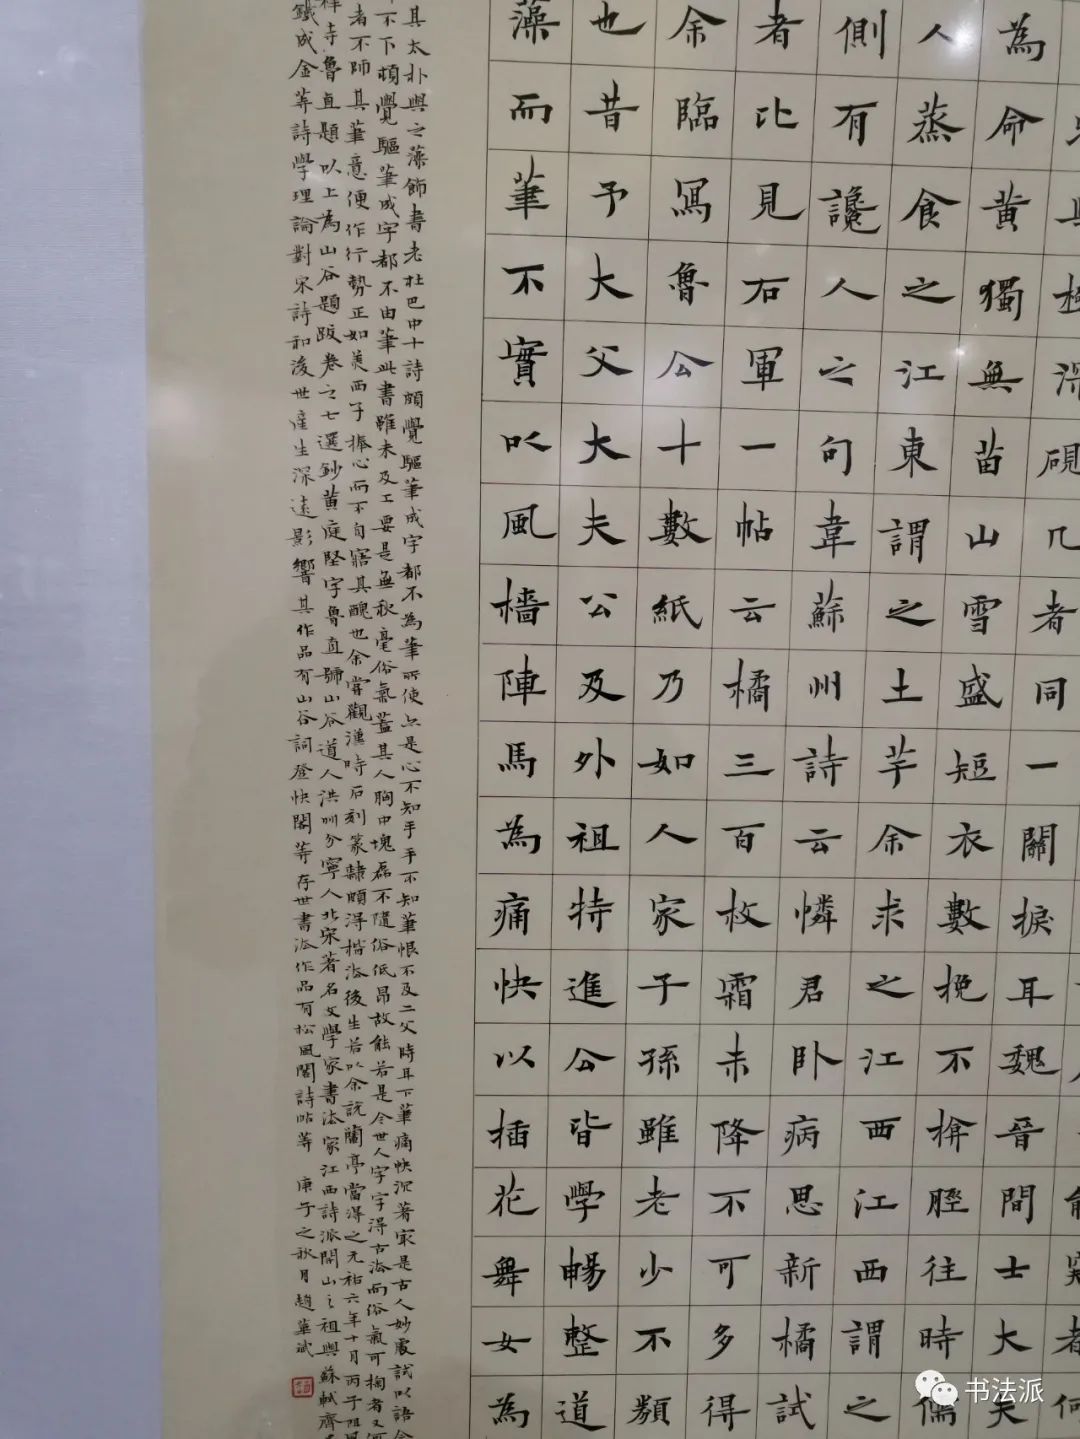 深硯几者同一關捩耳魏晉間士大
為命黃獨無苗山雪盛短衣數挽不揜脛往時儒
人蒸食之江東謂之土芋余求之江西江西謂之
側有讒人之句韋蘇州詩云憐君卧病思新橘試
者比見右軍一帖云橘三百枚霜未降不可多得
余臨寫魯公十數紙乃如人家子孫雖老少不類
也昔予大父大夫公及外祖特進公皆學暢整道
藻而筆不實以風檣陣馬為痛快以插花舞女為
其太朴與之藻飾書老杜巴中十詩頗覺驅筆成字都不為筆所使亦是心不知手手不知筆恨不及二父時耳下筆痛快沉著最是古人妙處試以語今
不下頓覺驅筆成字都不由筆此書雖未及工要是無秋毫俗氣蓋其人胸中塊磊不隨俗低昂故能若是今世人字字得古法而俗氣可掬者又
者不師其筆意便作行勢正如美西子捧心而不自寤其醜也余嘗觀漢時石刻篆隸頗得楷法後生若以余說蘭亭當得之元祐六年十月丙子阻風
禪寺魯直題以上為山谷題跋卷之七選鈔黃庭堅字魯直號山谷道人洪州分寧人北宋著名文學家書法家江西詩派開山之祖與蘇軾齊
鐵成金等詩學理論對宋詩和後世產生深遠影響其作品有山谷詞登快閣等存世書法作品有松風閣詩帖等 庚子之秋月趙華斌
书法派